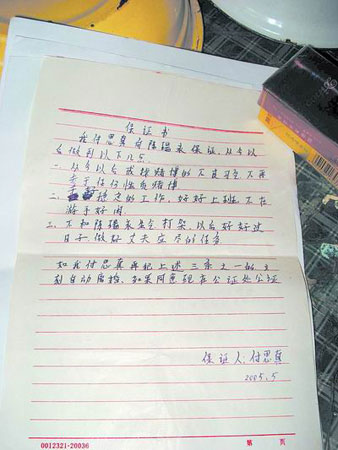 保证书
我付思真向陈瑞来保证，从今以
后做到以下几点
一、从今以后戒掉赌博的不良习气，不再
参于任何性质赌博
二、稳定的工作，好好上班，不在
游手好闲
三、不和陈瑞来生气打架，以后好好过
日子，做好丈夫应尽的任务
如我付思真再犯上述三条之一的立
刻自动离婚，如果同意现在公证处公证
保证人：付思真
2005.5
0012321-20036 第 页